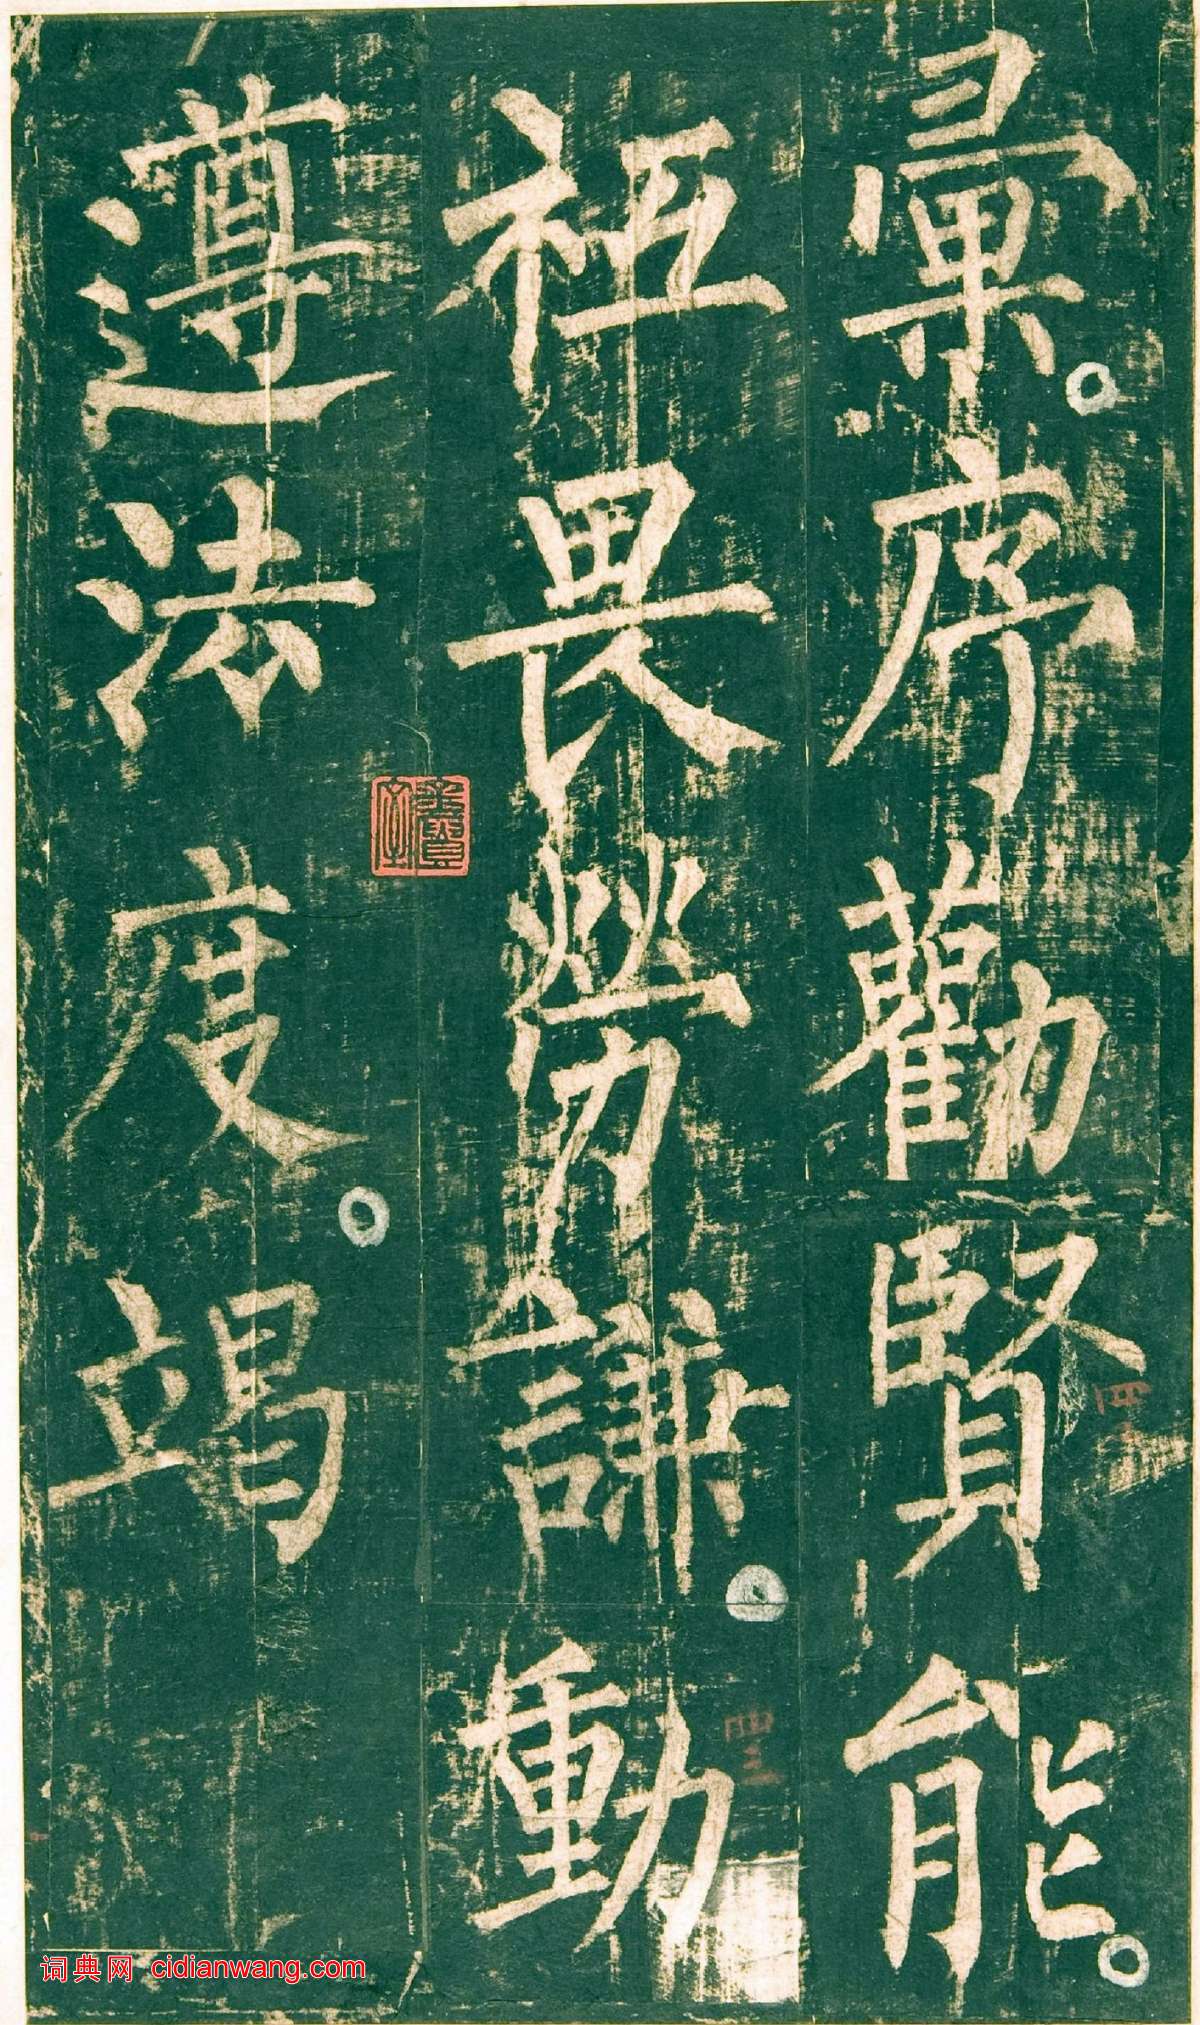 彚序勸賢能
祗畏勞謙動
遵法度竭
词典网 cidianwang.com